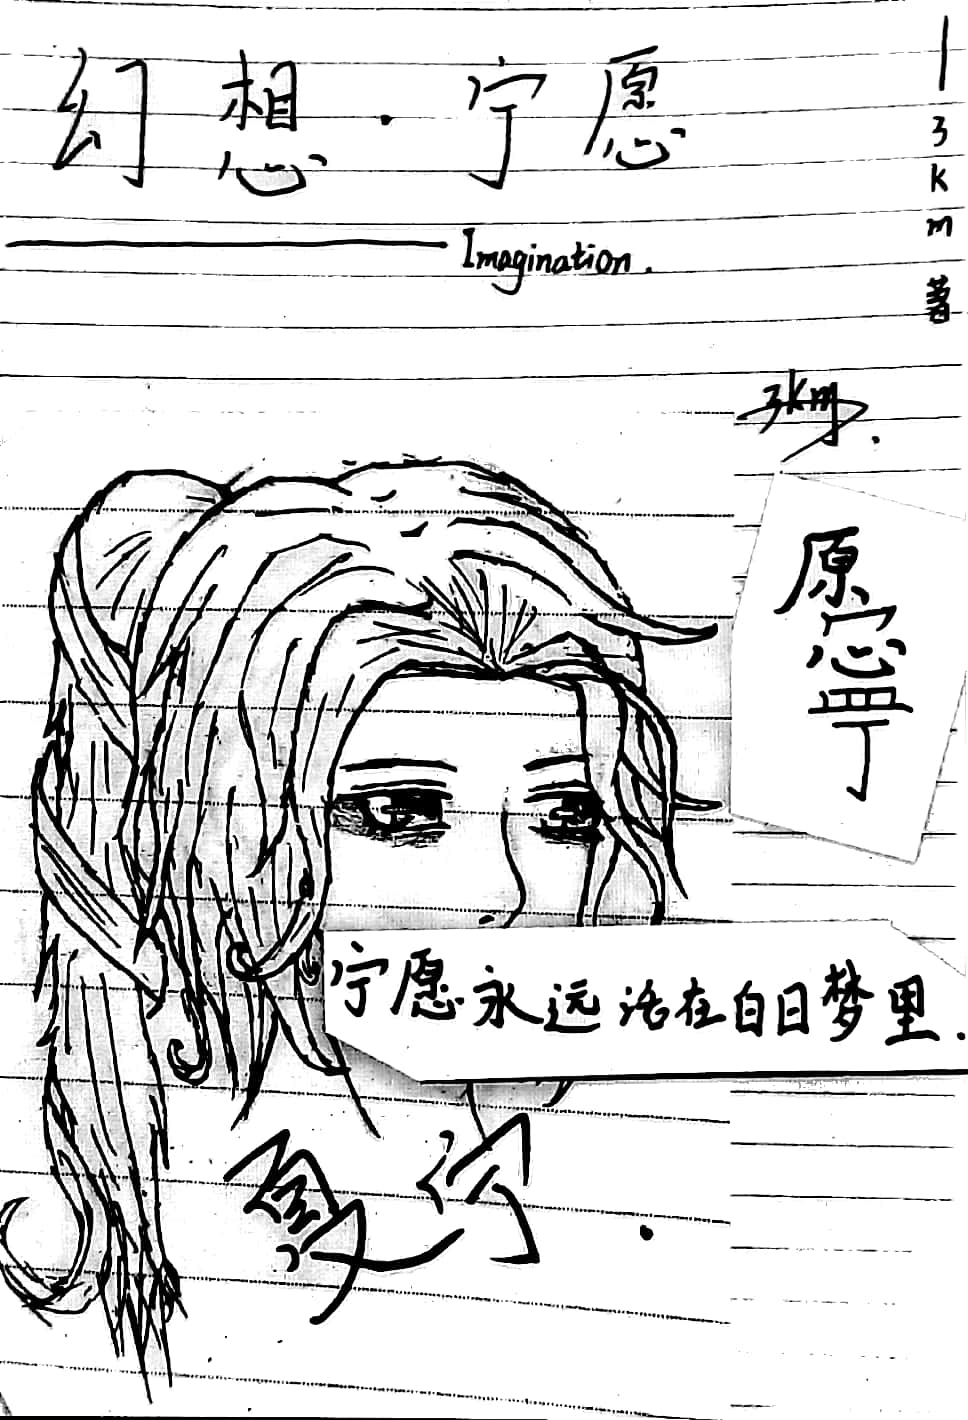 幻想·宁愿
Imagination.
|3km著
3km.
原寍丁
宁愿永远活在白日梦里.